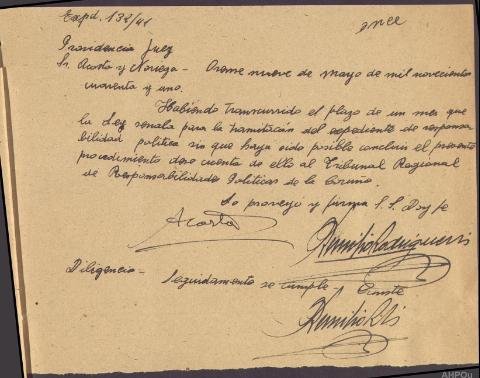 Expd. 132/41
once
Providencia Juez
Sr. Acosta y Noriega - Orense nueve de mayo de mil novecientos
cuarenta y uno.
Habiendo transcurrido el plazo de un mes que
la Ley señala para la tramitación del expediente de responsa-
bilidad política sin que haya sido posible concluir el presente
procedimiento dese cuenta de ello al Tribunal Regional
de Responsabilidades Politicas de la Coruña.
Lo proveyó y firma S.S. Doy fe
Acosta
Diligencia - Seguidamente se cumple y
AHPOu